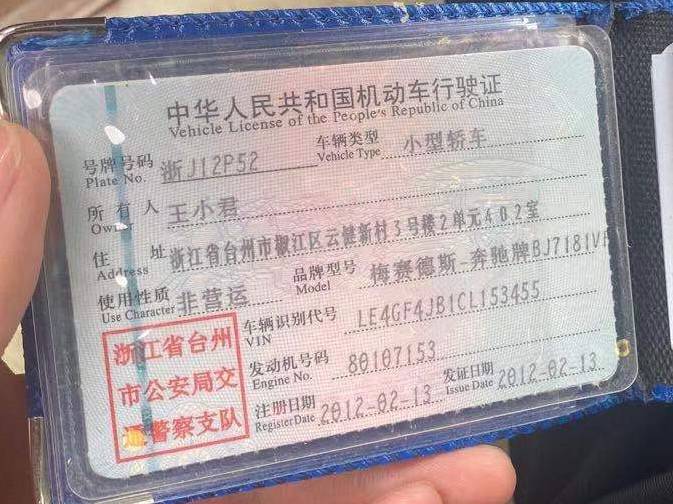 中华人民共和国机动车行驶证
Vehicle License of the People's Republic of China
号牌号码 浙J12P52 车辆类型 小型轿车
Plate No. Vehicle Type
所有人 王小君
Owner
住址 浙江省台州市椒江区云健新村3号楼2单元402室
Address
使用性质 非营运 品牌型号 梅赛德斯-奔驰牌BJ7181V
Use Character Model
浙江省台州
市公安局交
通警察支队
车辆识别代号 LE4GF4JB1CL153455
VIN
发动机号码 80107153
Engine No.
注册日期 2012-02-13 发证日期 2012-02-13
Register Date Issue Date